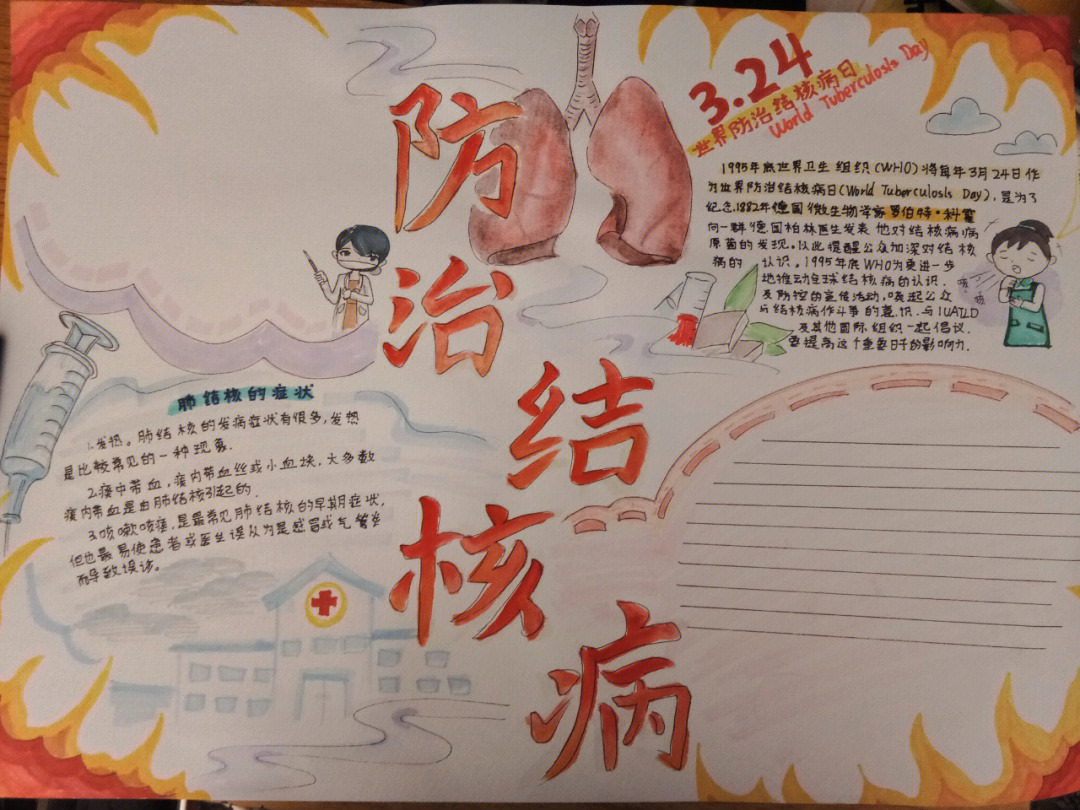 防治结核病
3.24
世界防治结核病日
World Tuberculosis Day
1995年底世界卫生组织(WHO)将每年3月24日作
为世界防治结核病日(World Tuberculosis Day),是为了
纪念1882年德国微生物学家罗伯特·科霍
向一群德国柏林医生发表他对结核病病
原菌的发现。以此提醒公众加深对结核
病的认识。1995年底WHO为更进一步
地推动全球结核病的认识.
及防控的宣传活动,唤起公众
与结核病作斗争的意识.与IUATLD
及其他国际组织一起倡议.
要提高这个重要日子的影响力.
咳·咳·
肺结核的症状
1.发热。肺结核的发病症状有很多,发热
是比较常见的一种现象.
2.痰中带血,痰内带血丝或小血块,大多数
痰内带血是由肺结核引起的.
3.咳嗽咳痰,是最常见肺结核的早期症状,
但也最易使患者或医生误认为是感冒或气管炎
而导致误诊。